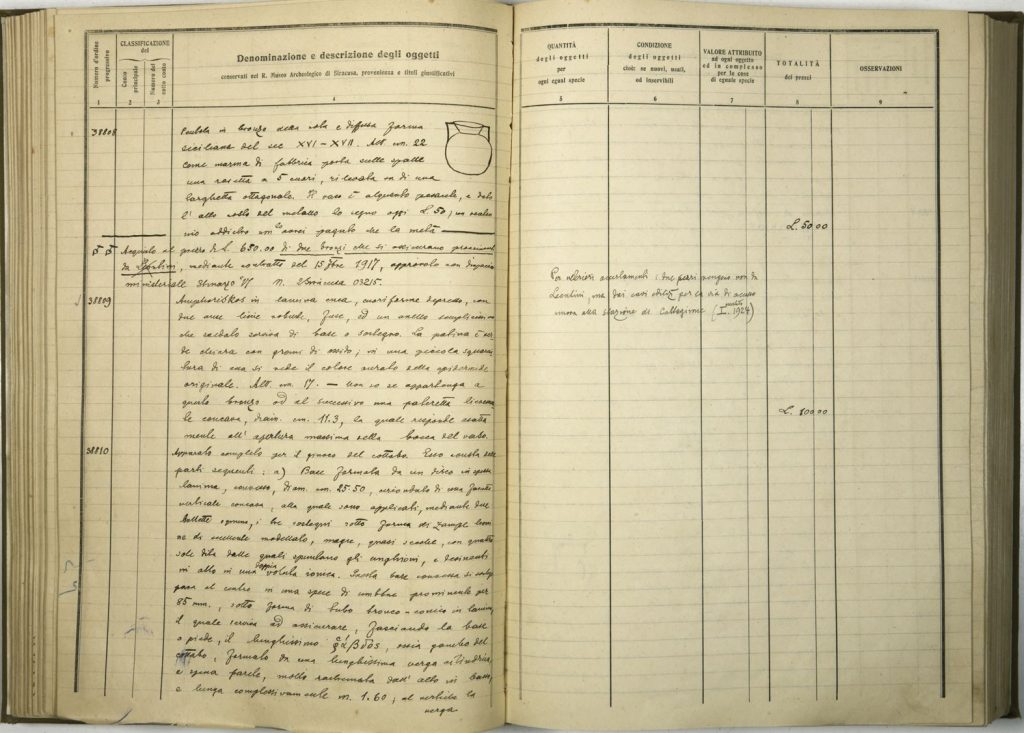 Numero d'ordine progressivo
CLASSIFICAZIONE del
Casco principale
Numero del sotto casco
Denominazione e descrizione degli oggetti
conservati nel R. Museo Archeologico di Siracusa, provenienza e titoli giustificativi
1 2 3 4
38808
in bronzo della sola e diffusa forma
siciliana del sec XVI-XVII. Alt. cm. 22
Come marca di fabbrica porta sulle spalle
una rosetta a 5 cuori, rilevata su di una
targhetta ottagonale. Il vaso è alquanto pesante, e dato
l'alto costo del metallo lo segno oggi £. 50; un
mio addietro non l'avrei pagato che la metà
Acquisto al prezzo di £. 650.00 di due bronzi che si assicurano provenienti
da Leontini, mediante contratto del 15 9bre 1917, approvato con dispaccio
ministeriale marzo N. 03215.
38809
Amphoriskos in lamina enea, cuoriforme depresso, con
due anse lisce robuste, fuse, ed un anello semplicissimo
che saldato serviva di base o sostegno. La patina è ver
de chiara con grumi di ossido; in una piccola squarcia
tura di essa si vede il colore aurato della epidermide
originale. Alt. cm. 17. — Non so se appartenga a
questo bronzo od al successivo una pateretta
concava, diam. cm. 11.3, la quale risponde esatta
mente all'apertura massima della bocca del vaso.
38810
Apparato completo per il giuoco del cottabo. Esso consta delle
parti seguenti: a) Base formata da un disco in spessa
lamina, convesso, diam. cm. 25.50, circondato di una fascetta
verticale concava, alla quale sono applicati, mediante due
bollette ognuno, i tre sostegni sotto forma di zampe leoni
ne di eccellente modellato, magre, quasi , con quattro
sole dita dalle quali spuntano gli unghioni, e desinenti
in alto in una doppia voluta ionica. Questa base convessa si
al centro in una specie di umbone prominente per
85 mm., sotto forma di tubo tronco-conico in lamina,
il quale serviva ad assicurare, fasciando la base
o piede, il lunghissimo ῥάβδος, ossia gambo del
cottabo, formato da una lunghissima verga cilindrica,
e piena parete, molto rastremata dall'alto in basso,
e lunga complessivamente m. 1.60; al vertice la
verga
QUANTITÀ degli oggetti per ogni egual specie
CONDIZIONE degli oggetti cioè: se nuovi, usati, od inservibili
VALORE ATTRIBUITO ad ogni oggetto ed in complesso per le cose di eguale specie
TOTALITÀ dei prezzi
OSSERVAZIONI
5 6 7 8 9
£. 50 00
Per ulteriori accertamenti i due pezzi vengono non da
Leontini, ma dai
alla stazione di Caltagirone ( 1924)
£. 100 00